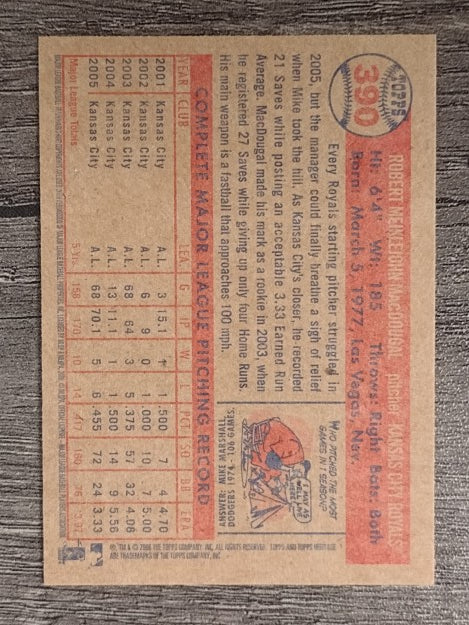 TOPPS
390
ROBERT MEIKLEJOHN MacDOUGAL PITCHER, KANSAS CITY ROYALS
Ht: 6'4" Wt: 185 Throws: Right Bats: Both
Born: March 5, 1977, Las Vegas, Nev.
Every Royals starting pitcher struggled in
2005, but the manager could finally breathe a sigh of relief
when Mike took the hill. As Kansas City's closer, he recorded
21 Saves while posting an acceptable 3.33 Earned Run
Average. MacDougal made his mark as a rookie in 2003, when
he registered 27 Saves while giving up only four Home Runs.
His main weapon is a fastball that approaches 100 mph.
WHO PITCHED THE MOST
GAMES IN 1 SEASON?
I MAY AS
WELL LIVE
HERE
ANSWER: MIKE MARSHALL,
DODGERS 1974, 106 GAMES.
COMPLETE MAJOR LEAGUE PITCHING RECORD
YEAR CLUB LEA G IP W L PCT SO BB ERA
2001 Kansas City A.L. 3 15.1 1 1 .500 7 4 4.70
2002 Kansas City A.L. 6 9 0 1 .000 10 7 5.00
2003 Kansas City A.L. 68 64 3 5 .375 57 32 4.06
2004 Kansas City A.L. 13 11.1 1 1 .500 14 9 5.56
2005 Kansas City A.L. 68 70.1 5 6 .455 72 24 3.33
Major League Totals 5 Yrs. 158 170 10 14 .417 160 76
©, TM & © 2006 THE TOPPS COMPANY, INC. ALL RIGHTS RESERVED. TOPPS AND TOPPS HERITAGE
ARE TRADEMARKS OF THE TOPPS COMPANY, INC.